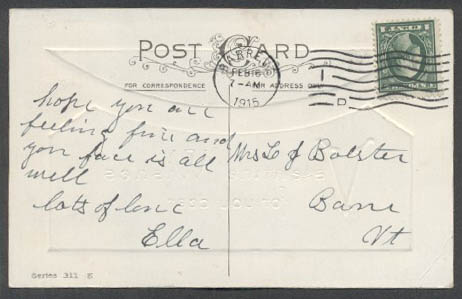 POST CARD
FOR CORRESPONDENCE
FOR ADDRESS ONLY
BARRE
FEB 16
7-AM
1915
D
hope you are
feeling fine and
your face is all
well
lots of love
Ella
Mrs L J Bolster
Barre
Vt
Series 311 E